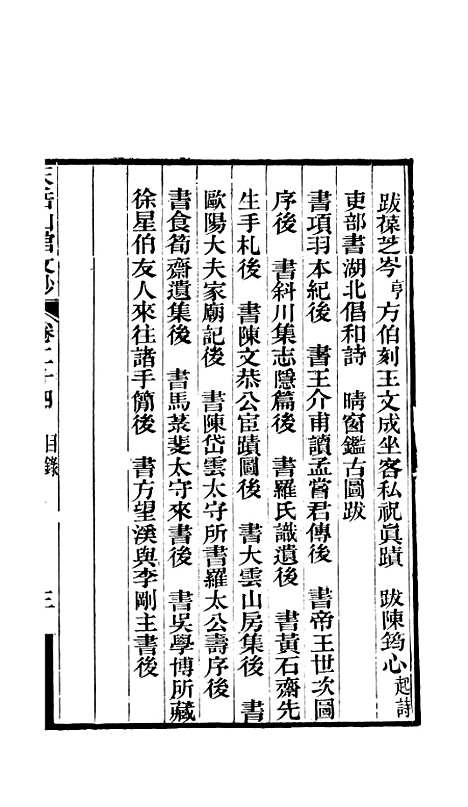 跋葆芝岑亨方伯刻王文成坐客私祝眞蹟　跋陳筠心起詩
吏部書湖北倡和詩　晴窗鑑古圖跋
書項羽本紀後　書王介甫讀孟嘗君傳後　書帝王世次圖
序後　書斜川集志隱篇後　書羅氏識遺後　書黃石齋先
生手札後　書陳文恭公宦蹟圖後　書大雲山房集後　書
歐陽大夫家廟記後　書陳岱雲太守所書羅太公壽序後
書食筍齋遺集後　書馬棻斐太守來書後　書吳學博所藏
徐星伯友人來往諸手簡後　書方望溪與李剛主書後
天岳山館文鈔　卷二十四　目錄　三